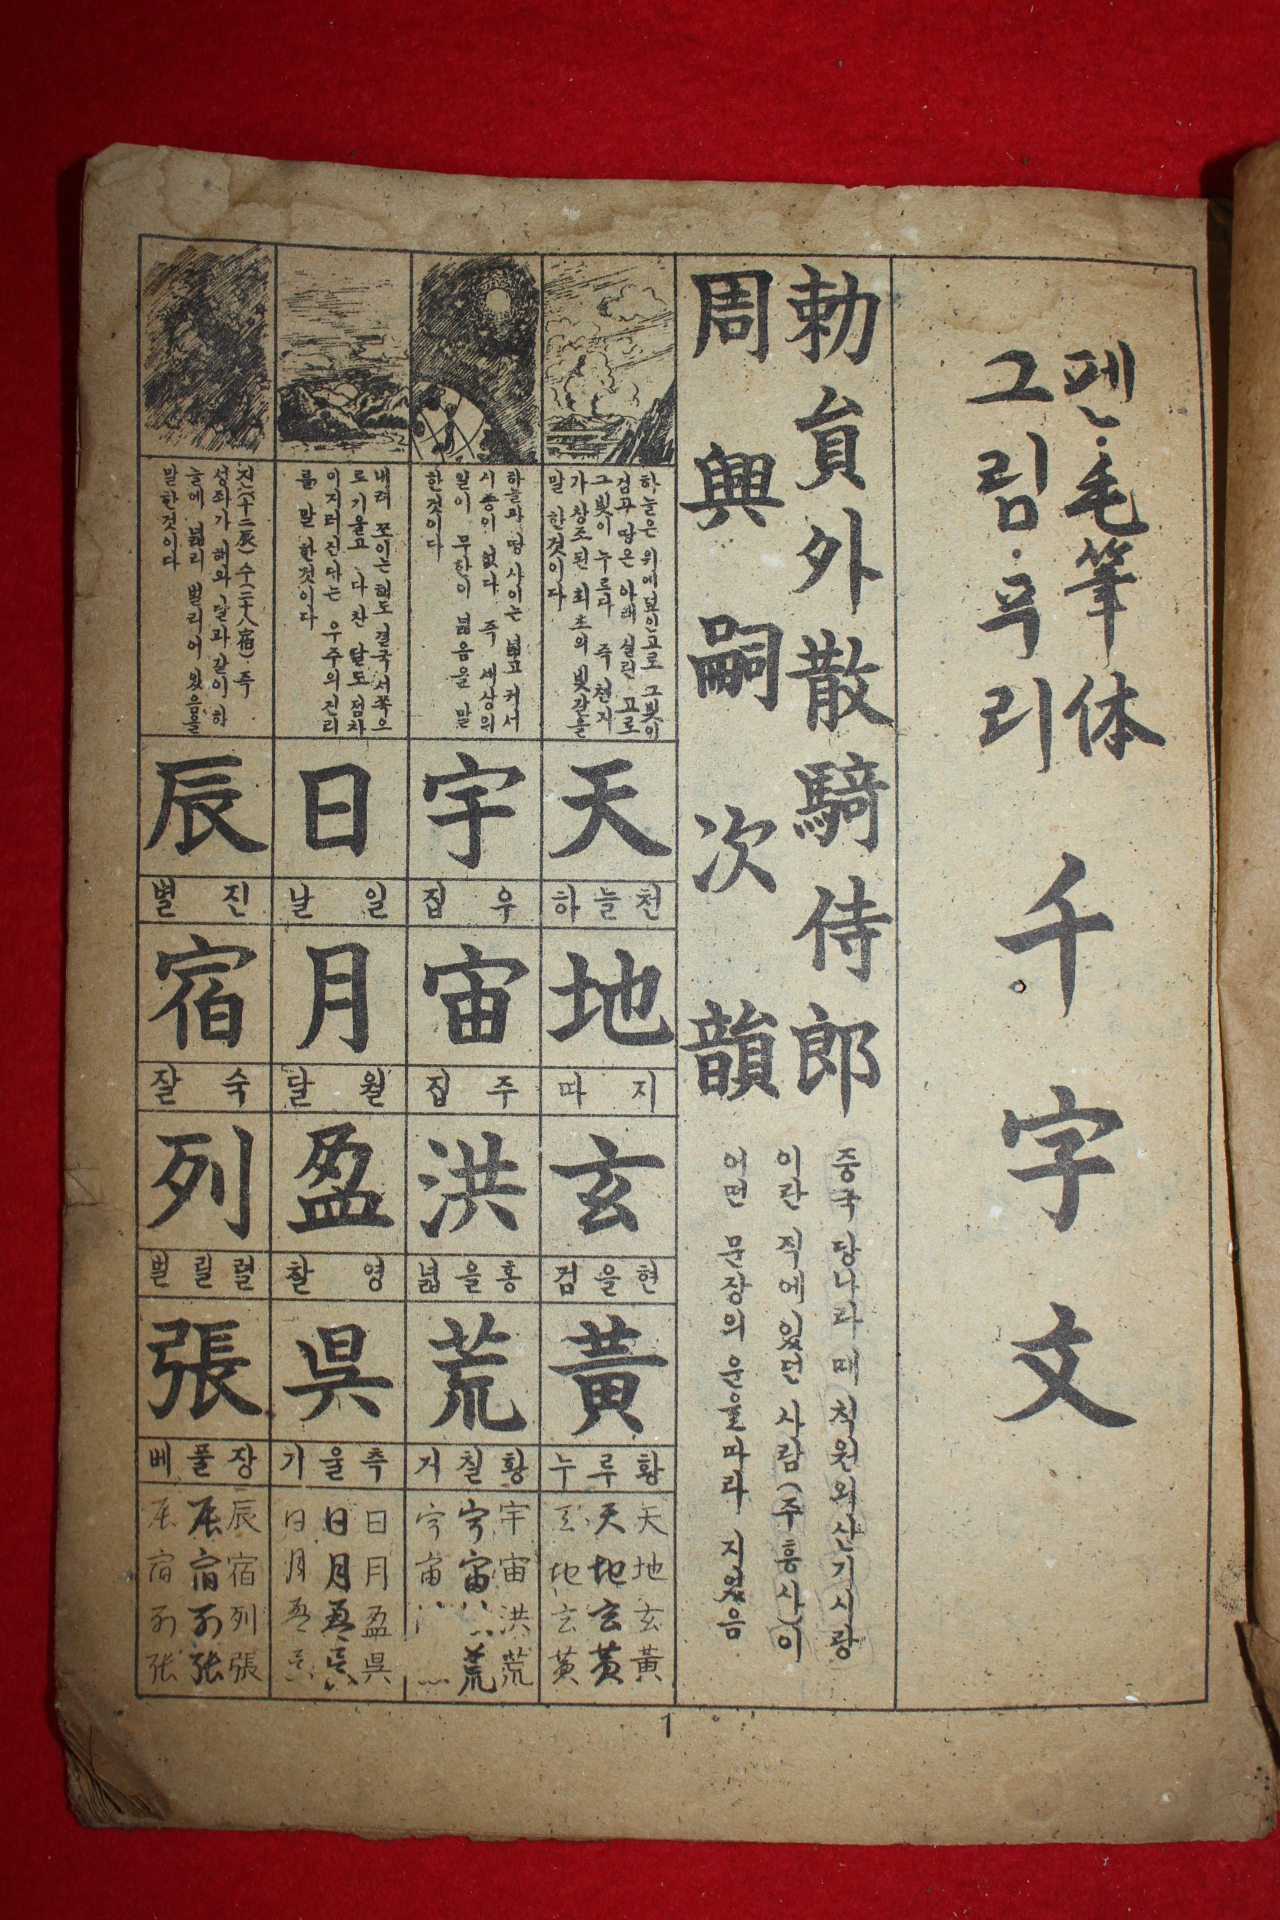 펜·毛筆体
그림·푸리
千字文
勅員外散騎侍郎
周興嗣次韻
중국 당나라 때 첫원외산기시랑
이란 직에 있던 사람(주흥사)이
이면 문장의 운을 따라 지었음
하늘은 위에 보인고로 그 빛이
검구 땅은 아래 실린 고로
그 빛이 누르다 즉 천지
가 창조된 최초의 빛갈을
말한것이다
天
하늘천
地
따지
玄
검을현
黃
누루황
天地玄黃
天地玄黃
하늘과 땅 사이는 넓고 커서
시종이 없다 즉 세상의
일이 무한이 넓음을 말
한것이다
宇
집우
宙
집주
洪
넓을홍
荒
거칠황
宇宙洪荒
내려 쪼이는 해도 결국 서쪽으
로 기울고 다 찬 달도 점차
이지러진다는 우주의 진리
를 말한것이다
日
날일
月
달월
盈
찰영
昃
기울측
日月盈昃
진(十二辰) 수(二十八宿) 즉
성좌가 해와 달과 같이 하
늘에 넓리 벌리어 있음을
말한것이다
辰
별진
宿
잘숙
列
벌릴렬
張
베풀장
辰宿列張
辰宿列张
1